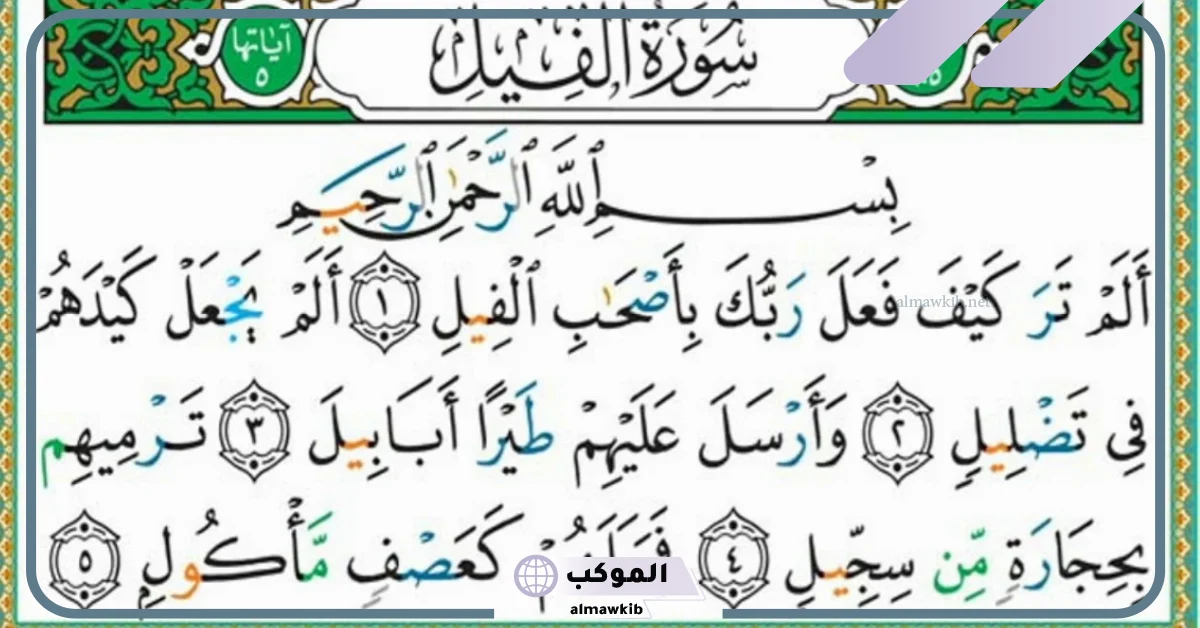 آيَاتُهَا ٥
سُورَةُ الْفِيلِ
بِسْمِ ٱللَّهِ ٱلرَّحْمَٰنِ ٱلرَّحِيمِ
أَلَمْ تَرَ كَيْفَ فَعَلَ رَبُّكَ بِأَصْحَٰبِ ٱلْفِيلِ ١ أَلَمْ يَجْعَلْ كَيْدَهُمْ
almawkib.net
فِى تَضْلِيلٍ ٢ وَأَرْسَلَ عَلَيْهِمْ طَيْرًا أَبَابِيلَ ٣ تَرْمِيهِم
بِحِجَارَةٍ مِّن سِجِّيلٍ ٤ كَعَصْفٍ مَّأْكُولٍ ٥
الموكب
almawkib